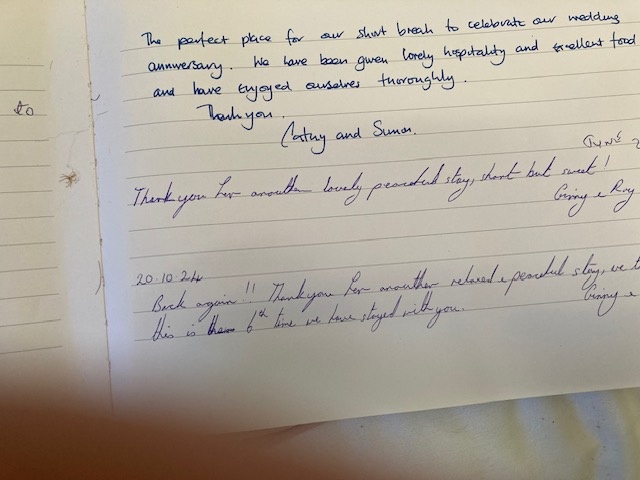 to
The perfect place for our short break to celebrate our wedding
anniversary. We have been given lovely hospitality and excellent food
and have enjoyed ourselves thoroughly.
Thank you.
Cathy and Simon.
Thank you for another lovely peaceful stay, short but sweet!
Ginny & Roy
20.10.24
Back again!! Thank you for another relaxed & peaceful stay, we t
this is the 6th time we have stayed with you.
Ginny &